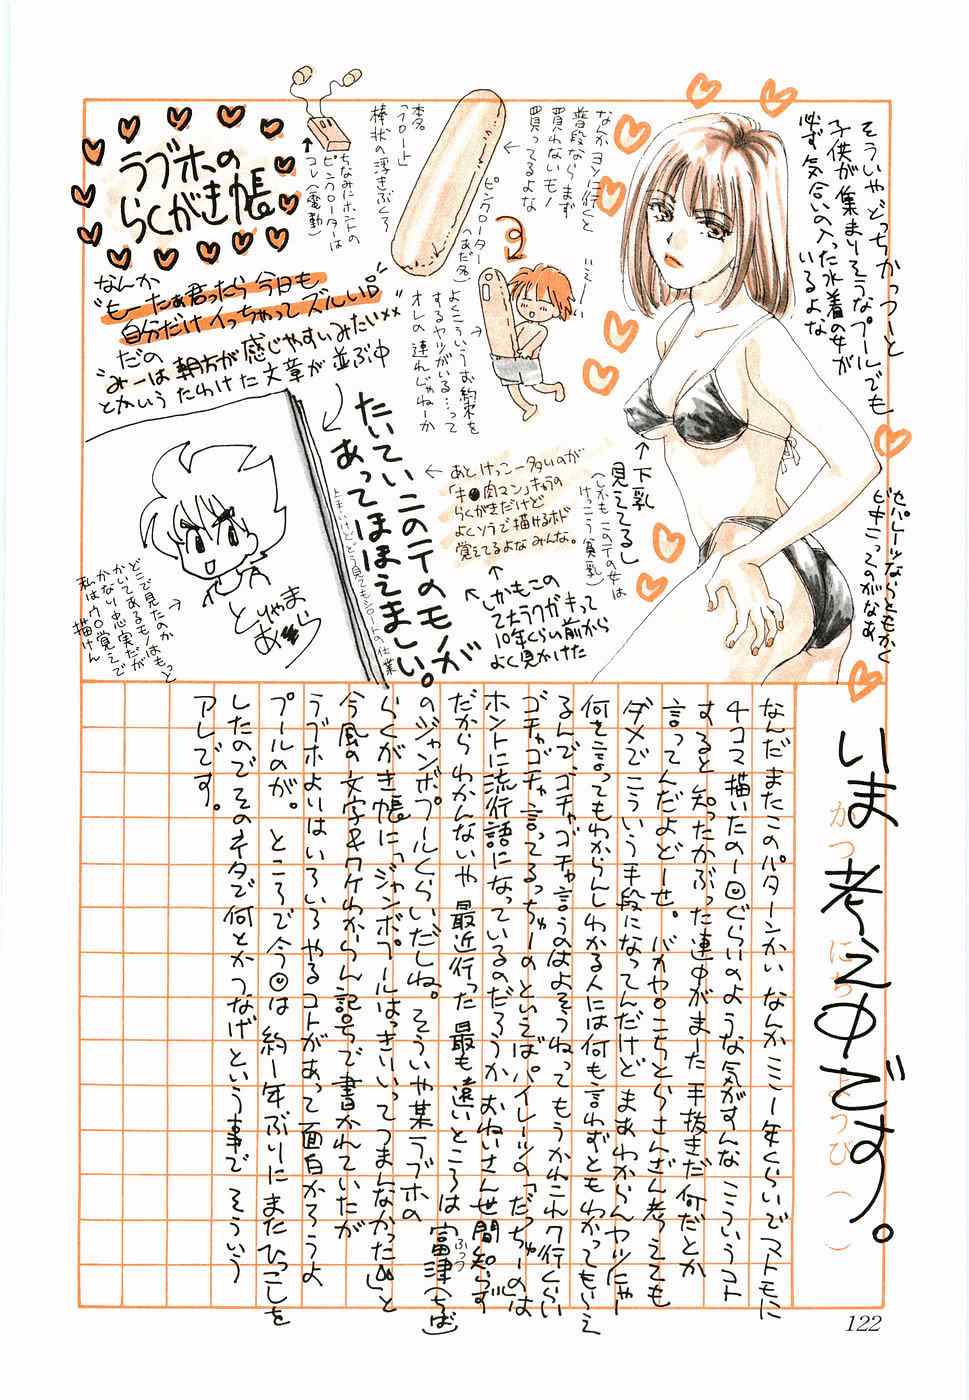 そういやどっちかっつーと
子供が集まりそうなプールでも
必ず気合いの入った水着の女が
いるよな
セパレーツならともかく
ビキニってのがなあ
↑下乳
見えてるし
(しかもこのテの女は
けっこう貧乳)
なんかヨソに行くと
普段ならまず
買わないモノ
買ってるよな
いえー
ピンクローター
(あだ名)
本名
「フロート」
棒状の浮きぶくろ
ちなみにホントの
ピンクローターは
コレ(電動)
よくこういうお約束を
するヤツがいる…って
オレの連れじゃねーか
ラブホの
らくがき帳
なんか
"もーたぁ君ったら今日も
自分だけイっちゃってズルいゾ"
だの
"みーは朝方が感じやすいみたい××"
とかいうたわけた文章が並ぶ中
たいていこのテのモノが
あってほほえましい。
あとけっこー多いのが
「キ●肉マン」キャラの
らくがきだけど
よくソラで描けるホド
覚えてるよなみんな。
しかもこの
てたラクガキって
10年くらい前から
よく見かけた
とりやま
あきら
どこで見たのか
かいてあるモノはもっと
かなり忠実だが
私はウロ覚えで
描けん
いま考え中です。
かつ にち ようび ( )
なんだまたこのパターンかいなんかここ1年くらいでマトモに
4コマ描いたの1回ぐらいのような気がすんなこういうコト
すると知ったかぶった連中がまーた手抜きだ何だとか
言ってんだよどーせ。バカヤローこちとらさんざん考えても
ダメでこういう手段になってんだけどまあわからんヤツにゃー
何を言ってもわからんしわかる人には何も言わずともわかってもらえ
るんで、ゴチャゴチャ言うのはよそうねってもうかれこれ7行くらい
ゴチャゴチャ言ってるっちゅーのといえばパイレーツの「だっちゅーの」は
ホントに流行語になっているのだろうかおねいさん世間知らず
だからわかんないや最近行った最も遠いところは富津(ちば)
ふっつ
のジャンボプールくらいだしね。そういや某ラブホの
らくがき帳に「ジャンボプールはっきりいってつまんなかった凸」と
今風の文字&ワケわからん記号で書かれていたが
ラブホよりはいろいろやるコトがあって面白かろうよ
プールのが。ところで今回は約1年ぶりにまたひっこしを
したのでそのネタで何とかつなげという事でそういう
アレです。
122